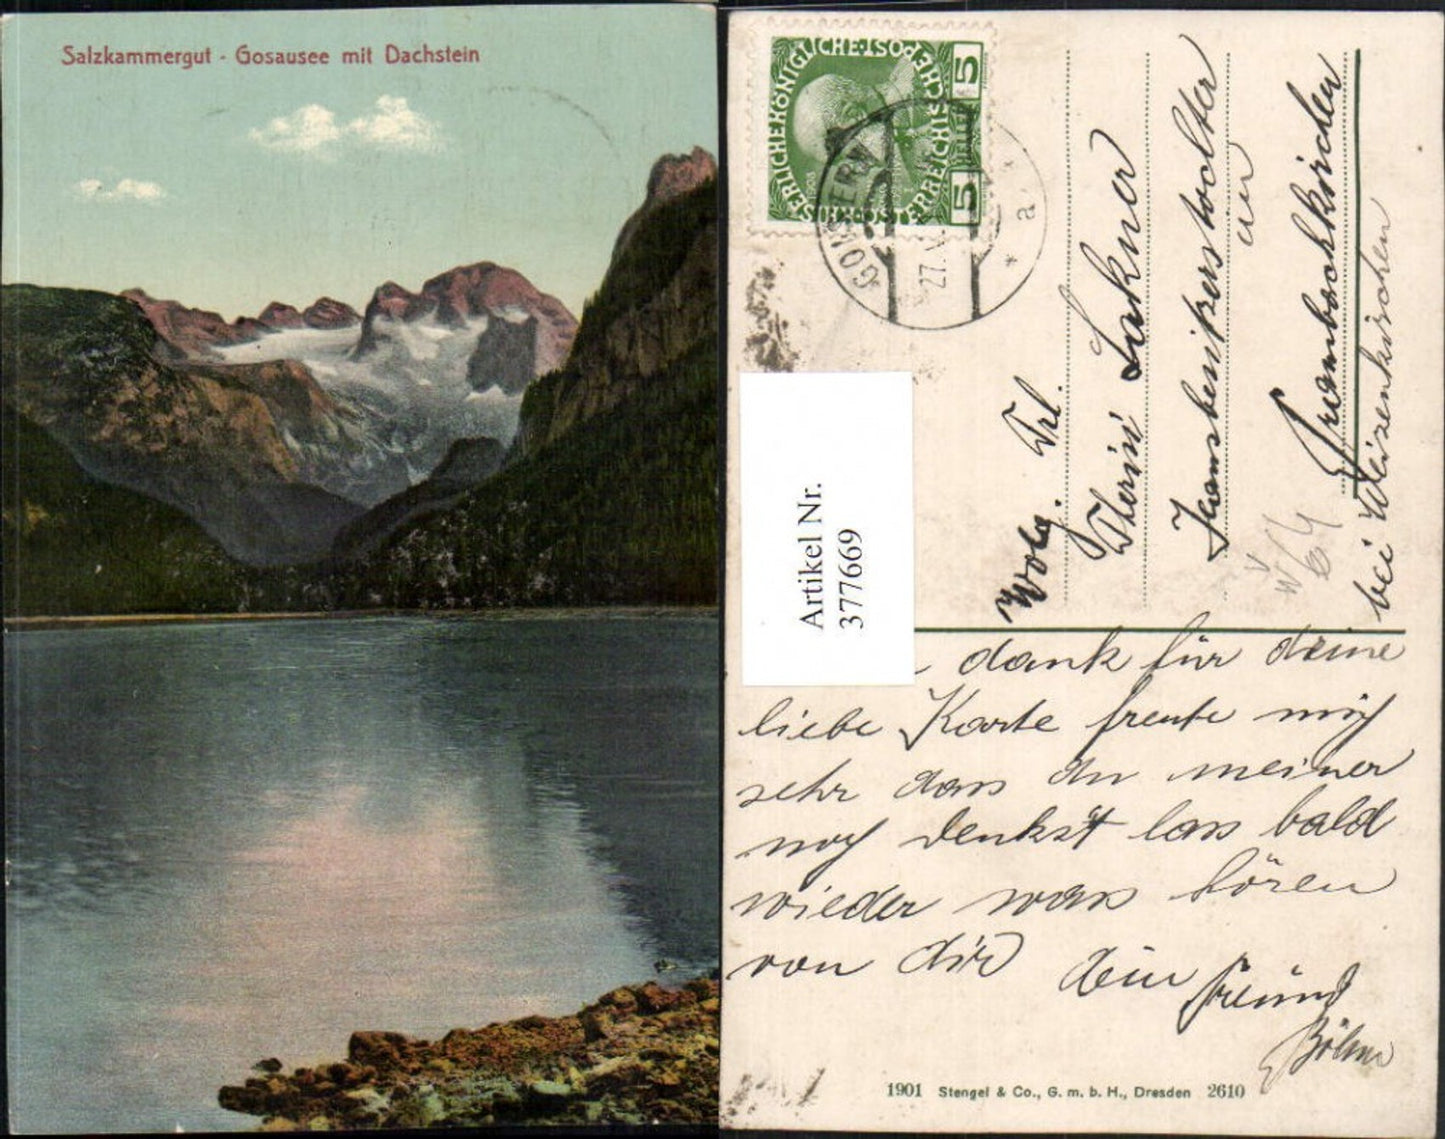 Salzkammergut - Gosausee mit Dachstein
KAISERLICHE KÖNIGLICHE POST
ÖSTERREICHISCHE
5 HELLER 5
GOISERN
27. V
* a *
Artikel Nr.
377669
Wolg. Frl.
Lakner
in
Frambachkirchen
bei Weizenkirchen
dank für deine
liebe Karte freute mich
sehr dass du meiner
noch denkst lass bald
wieder was hören
von dir dein Freund
Böhm
1901 Stengel & Co., G. m. b. H., Dresden 2610